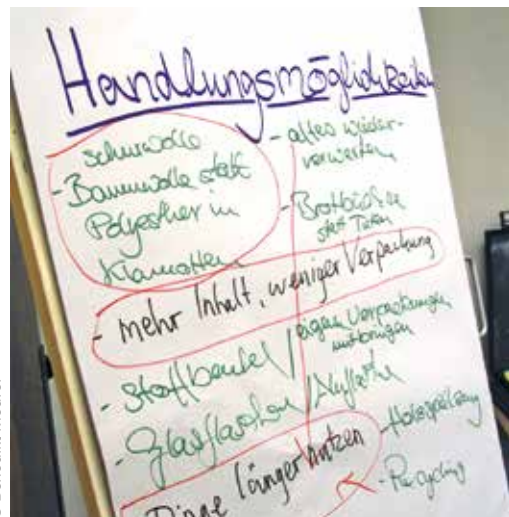 Handlungsmöglichkeiten
Schurwolle
- Baumwolle statt
Polyesther in
Klamotten
- altes wieder-
verwerten
- Brotbüchse
statt Tüten
- mehr Inhalt, weniger Verpackung
- Stoffbeutel / eigen Verpackungen
mitbringen
- Glasflasche /
Dinge länger nutzen
- Recycling